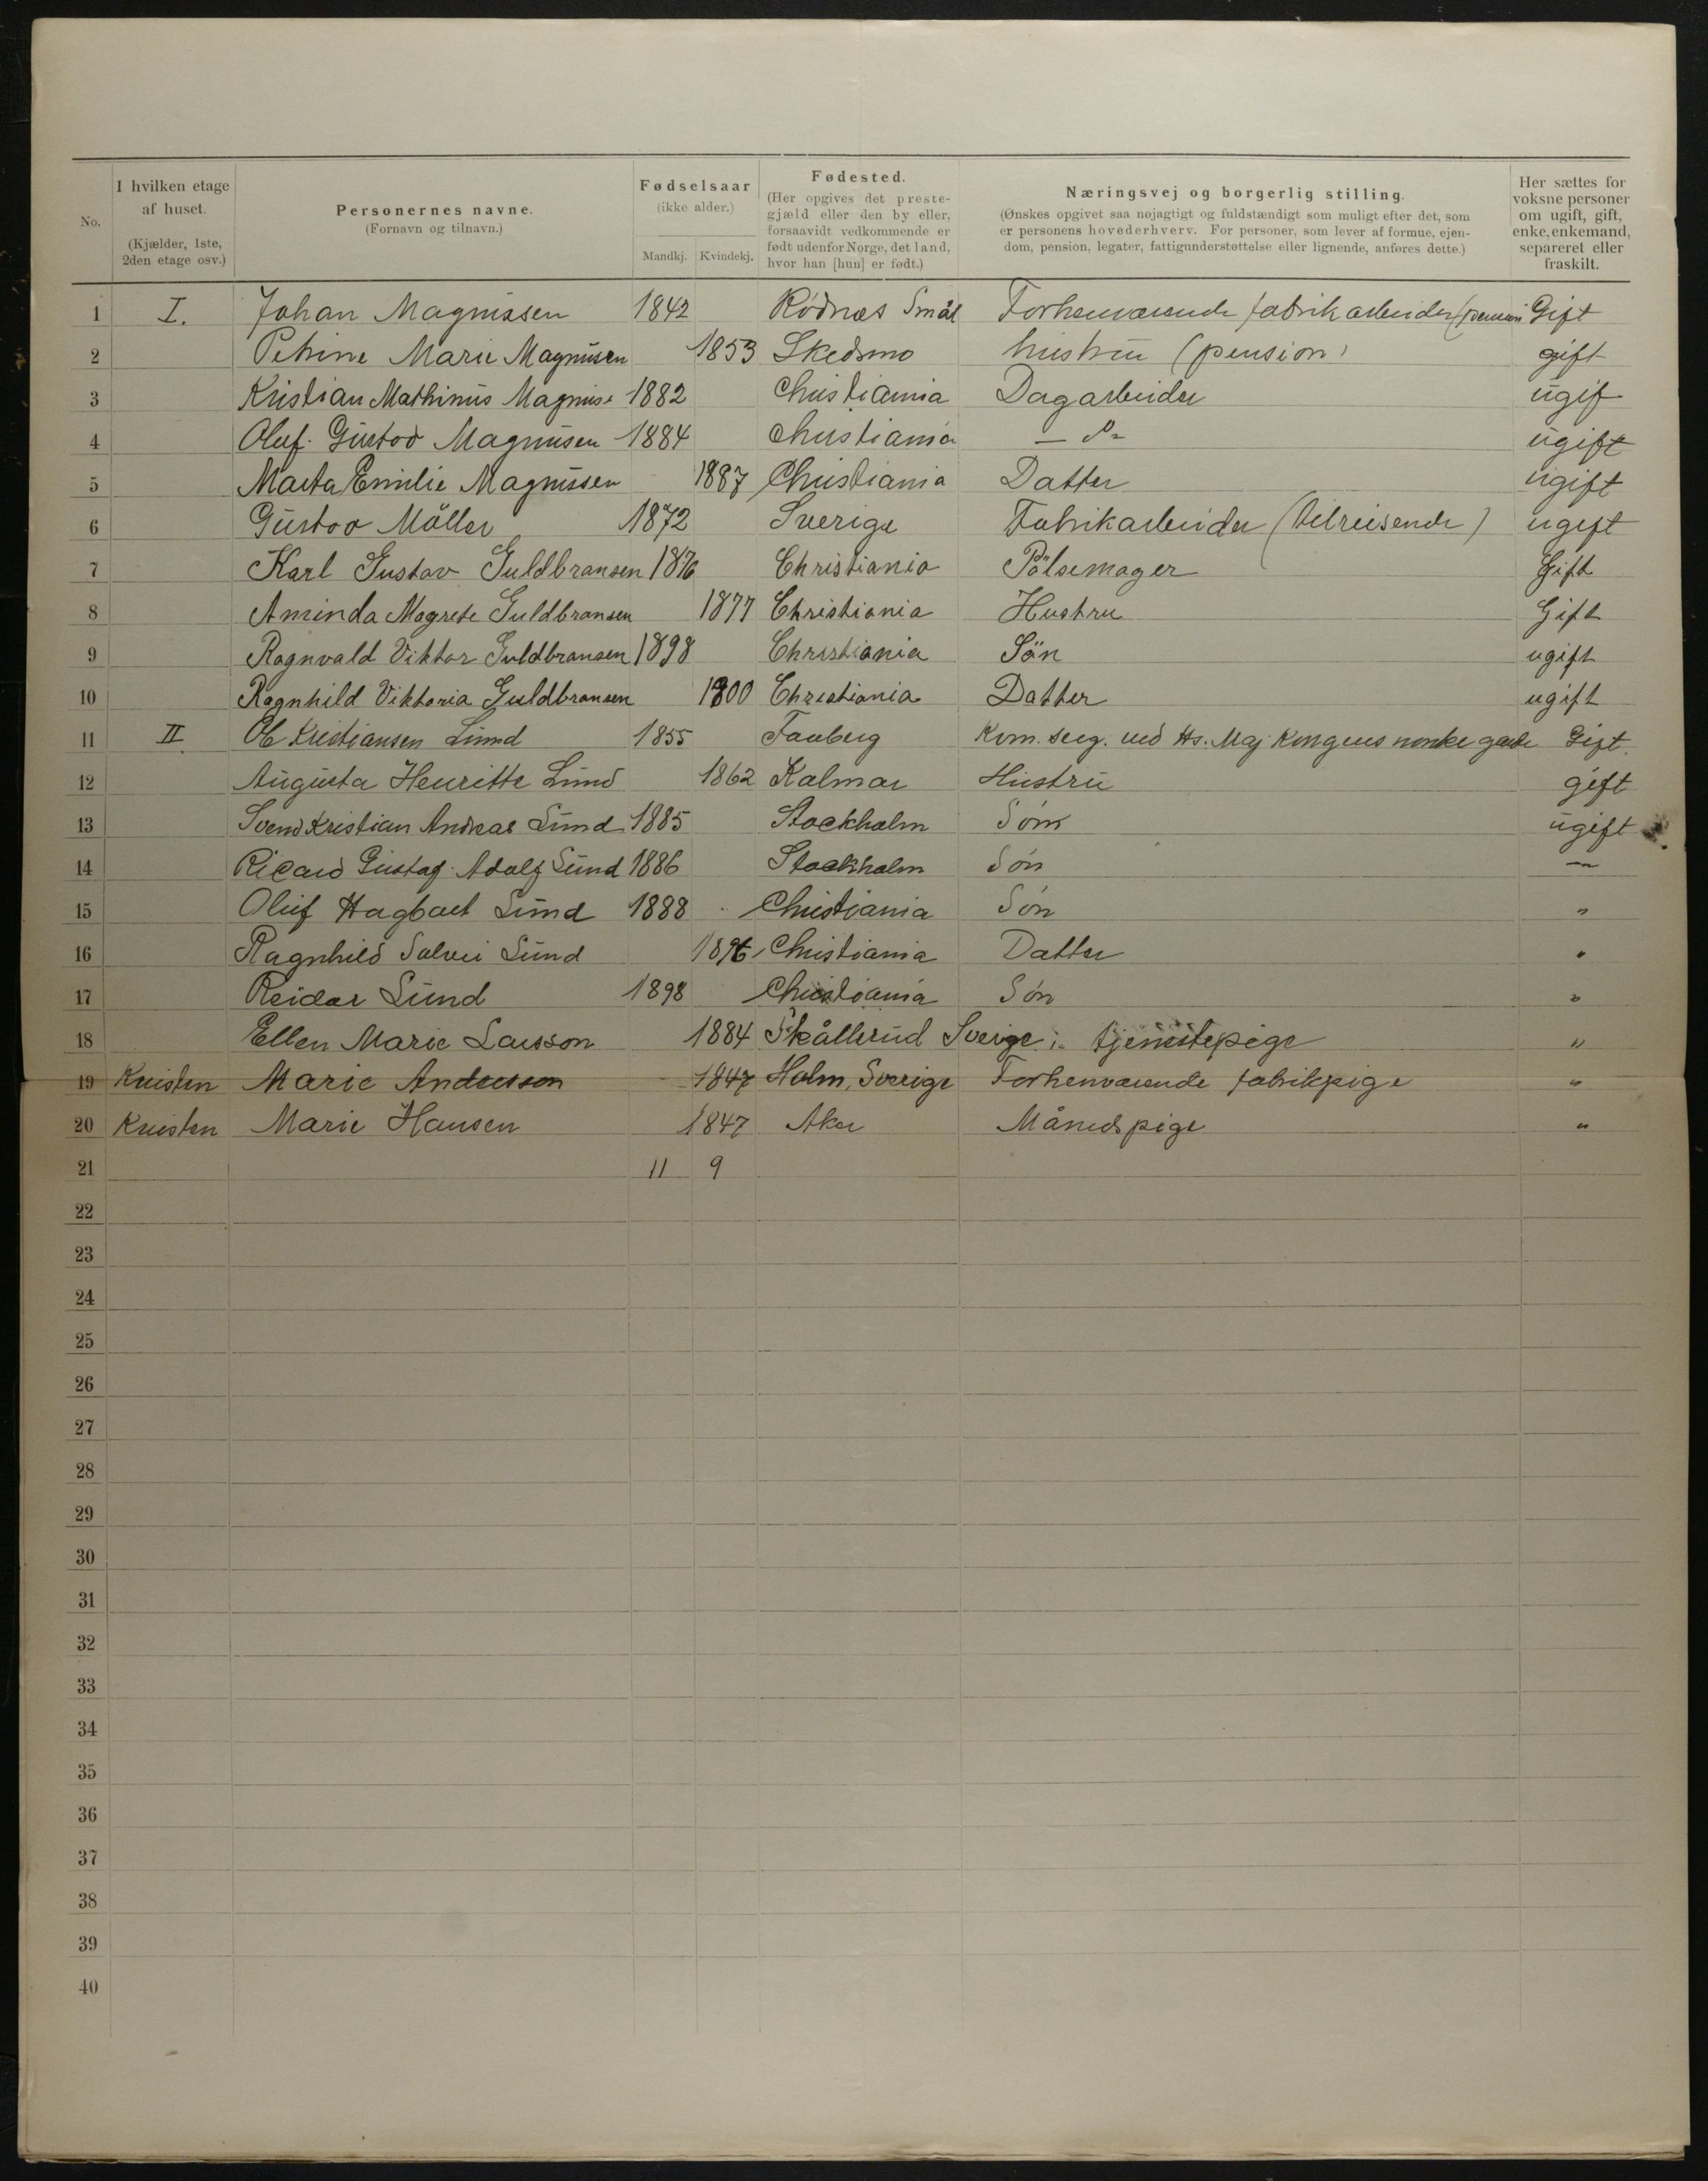 No.
I hvilken etage af huset. (Kjælder, 1ste, 2den etage osv.)
Personernes navne. (Fornavn og tilnavn.)
Fødselsaar (ikke alder.) Mandkj. Kvindekj.
Fødested. (Her opgives det prestegjæld eller den by eller, forsaavidt vedkommende er født udenfor Norge, det land, hvor han [hun] er født.)
Næringsvej og borgerlig stilling. (Ønskes opgivet saa nøjagtigt og fuldstændigt som muligt efter det, som er personens hovederhverv. For personer, som lever af formue, ejendom, pension, legater, fattigunderstøttelse eller lignende, anføres dette.)
Her sættes for voksne personer om ugift, gift, enke, enkemand, separeret eller fraskilt.
1 I. Johan Magnussen 1842 Rødnæs Smål Forhenværende fabrikarbeider (pension Gift
2 Petrine Marie Magnusen 1853 Skedsmo hustru (pension) gift
3 Kristian Mathinus Magnuse 1882 Christiania Dagarbeider ugif
4 Oluf. Gustav Magnusen 1884 Christiania — d° ugift
5 Marta Emilie Magnussen 1887 Christiania Datter ugift
6 Gustav Møller 1872 Sverige Fabrikarbeider (tilreisende) ugift
7 Karl Gustav Guldbransen 1876 Christiania Pølsemager Gift
8 Aminda Magrete Guldbransen 1877 Christiania Hustru Gift
9 Ragnvald Viktor Guldbransen 1898 Christiania Sön ugift
10 Ragnhild Viktoria Guldbransen 1900 Christiania Datter ugift
11 II Ole Kristiansen Lund 1855 Faaberg Kom. serg. ved Hs. Maj Kongens norske garde Gift.
12 Augusta Henritte Lund 1862 Kalmar Hustru gift
13 Svend Kristian Andreas Lund 1885 Stockholm Søn ugift
14 Ricard Gustaf. Adolf Lund 1886 Stockholm Søn —
15 Oluf Hagbart Lund 1888 Christiania Søn "
16 Ragnhild Solvei Lund 1896 Christiania Datter "
17 Reidar Lund 1898 Christiania Søn "
18 Ellen Marie Larsson 1884 Skållerud Sverige tjenestepige "
19 Kvisten Marie Andersson 1847 Holm, Sverige Forhenværende fabrikpige "
20 Kvisten Marie Hansen 1847 Aker Månedspige "
21 11 9
22
23
24
25
26
27
28
29
30
31
32
33
34
35
36
37
38
39
40